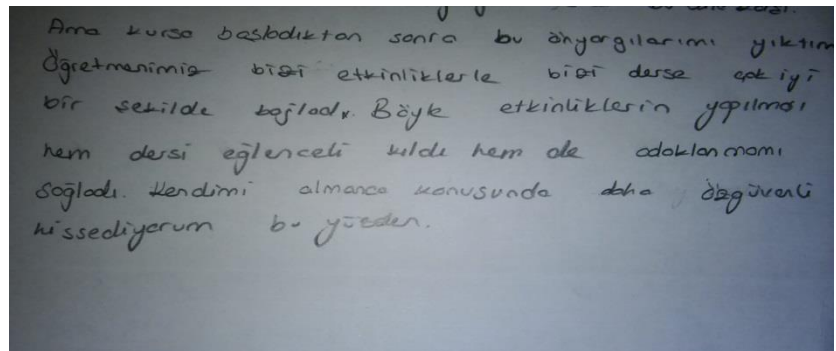 Ama kursa başladıktan sonra bu önyargılarımı yıktım
Öğretmenimiz bizi etkinliklerle bizi derse çok iyi
bir şekilde bağladı. Böyle etkinliklerin yapılması
hem dersi eğlenceli kıldı hem de odaklanmamı
sağladı. Kendimi almanca konusunda daha özgüvenli
hissediyorum bu yüzden.